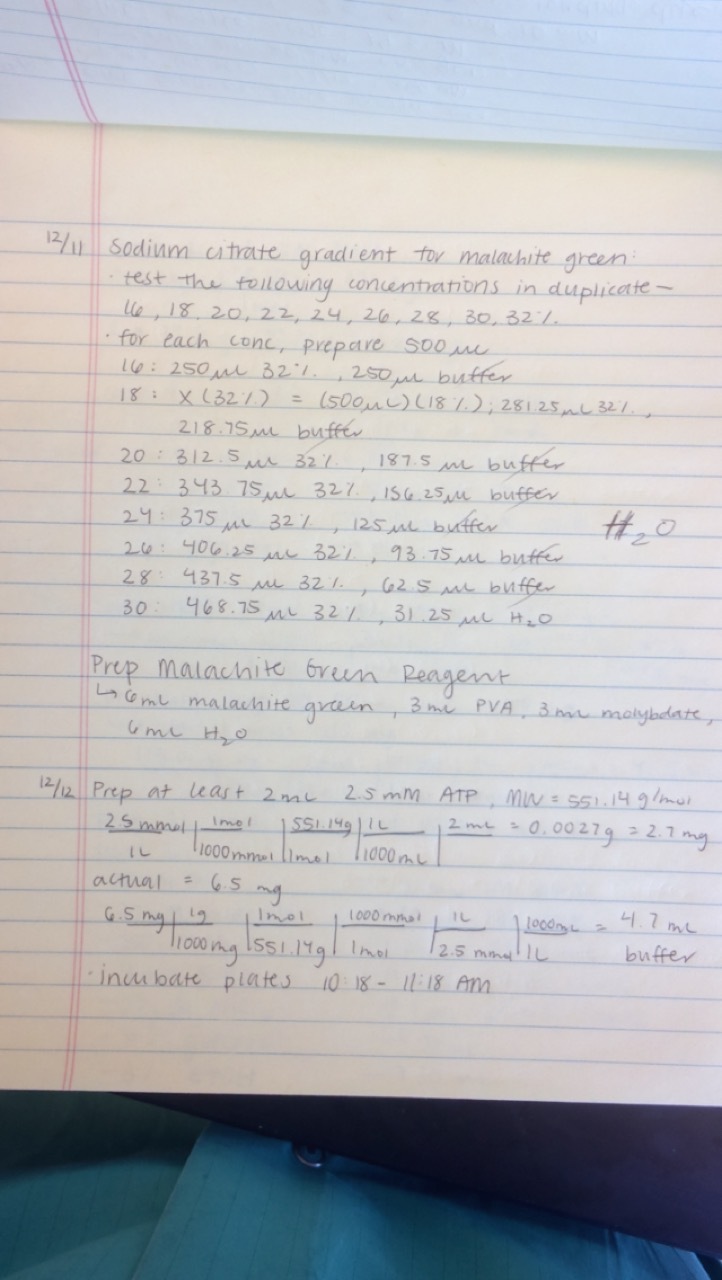 12/11 Sodium citrate gradient for malachite green:
· test the following concentrations in duplicate -
16, 18, 20, 22, 24, 26, 28, 30, 32%.
· for each conc, prepare 500 μL
16: 250 μL 32%, 250 μL buffer
18: X(32%) = (500μL)(18%); 281.25 μL 32%,
218.75 μL buffer
20: 312.5 μL 32%, 187.5 μL buffer
22: 343.75 μL 32%, 156.25 μL buffer
24: 375 μL 32%, 125 μL buffer H₂O
26: 406.25 μL 32%, 93.75 μL buffer
28: 437.5 μL 32%, 62.5 μL buffer
30: 468.75 μL 32%, 31.25 μL H₂O
Prep Malachite Green Reagent
↳ 6mL malachite green, 3 mL PVA, 3 mL molybdate,
6 mL H₂O
12/12 Prep at least 2 mL 2.5 mM ATP, MW = 551.14 g/mol
2.5 mmol | 1mol | 551.14g | 1L | 2 mL = 0.0027g = 2.7 mg
1L | 1000 mmol | 1mol | 1000 mL
actual = 6.5 mg
6.5 mg | 1g | 1mol | 1000 mmol | 1L | 1000mL = 4.7 mL
1000 mg | 551.14g | 1mol | 2.5 mmol | 1L buffer
· incubate plates 10:18 - 11:18 AM